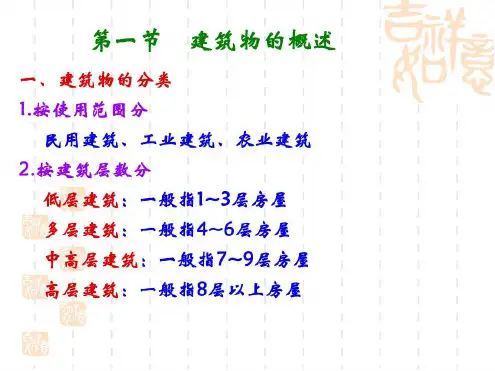 第一节 建筑物的概述
一、建筑物的分类
1.按使用范围分
民用建筑、工业建筑、农业建筑
2.按建筑层数分
低层建筑：一般指1~3层房屋
多层建筑：一般指4~6层房屋
中高层建筑：一般指7~9层房屋
高层建筑：一般指8层以上房屋
吉祥如意